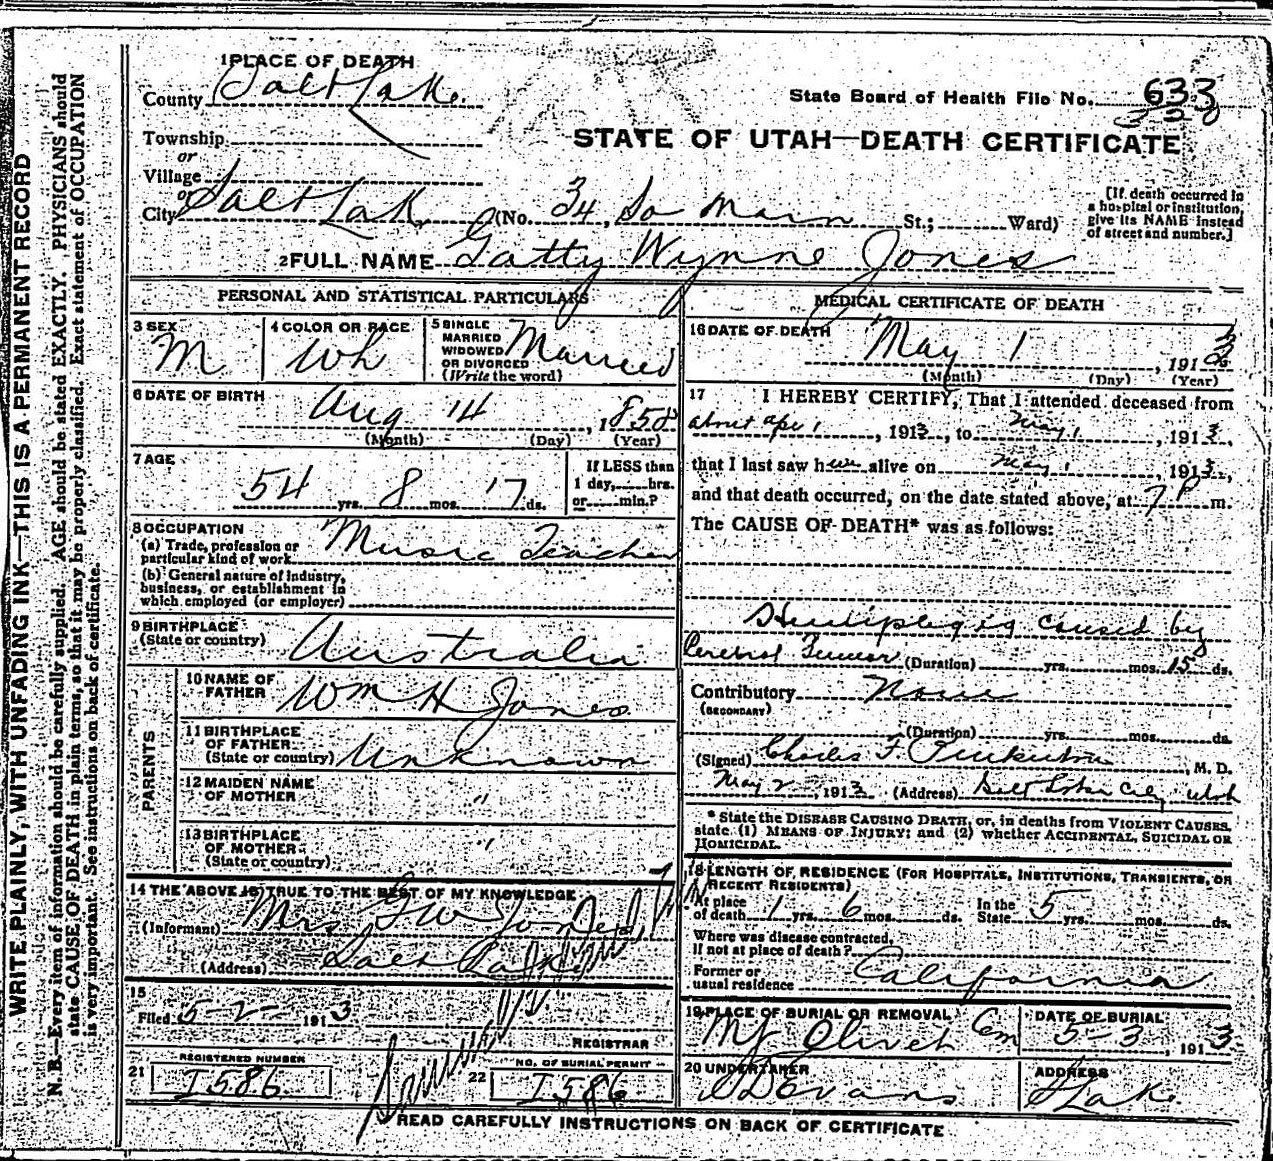 WRITE PLAINLY, WITH UNFADING INK—THIS IS A PERMANENT RECORD
N. B.—Every item of information should be carefully supplied. AGE should be stated EXACTLY. PHYSICIANS should
state CAUSE OF DEATH in plain terms, so that it may be properly classified. Exact statement of OCCUPATION
is very important. See instructions on back of certificate.
1 PLACE OF DEATH
County Salt Lake.
State Board of Health File No. 633
Township
or
STATE OF UTAH—DEATH CERTIFICATE
Village
or
City Salt Lake (No. 34, So Main St.; Ward)
[If death occurred in
a hospital or institution,
give its NAME instead
of street and number.]
2 FULL NAME Gatty Wynne Jones
PERSONAL AND STATISTICAL PARTICULARS
3 SEX
M
4 COLOR OR RACE
Wh
5 SINGLE
MARRIED
WIDOWED
OR DIVORCED
(Write the word)
Married
6 DATE OF BIRTH
Aug 14, 1858
(Month) (Day) (Year)
7 AGE
54 yrs. 8 mos. 17 ds.
If LESS than
1 day, hrs.
or min.?
8 OCCUPATION
(a) Trade, profession or
particular kind of work Music Teacher
(b) General nature of industry,
business, or establishment in
which employed (or employer)
9 BIRTHPLACE
(State or country) Australia
PARENTS
10 NAME OF
FATHER Wm H Jones
11 BIRTHPLACE
OF FATHER
(State or country) Unknown
12 MAIDEN NAME
OF MOTHER "
13 BIRTHPLACE
OF MOTHER
(State or country) "
14 THE ABOVE IS TRUE TO THE BEST OF MY KNOWLEDGE
(Informant) Mrs G W Jones
(Address) Salt Lake
15
Filed 5-2- 1913
REGISTRAR
REGISTERED NUMBER
21 1586
NO. OF BURIAL PERMIT
22 1586
MEDICAL CERTIFICATE OF DEATH
16 DATE OF DEATH
May 1, 1913
(Month) (Day) (Year)
17 I HEREBY CERTIFY, That I attended deceased from
about Apr 1, 1913, to May 1, 1913,
that I last saw him alive on May 1, 1913,
and that death occurred, on the date stated above, at 7 P m.
The CAUSE OF DEATH* was as follows:
Hemiplegia caused by
Cerebral Tumor (Duration) yrs. mos. 15 ds.
Contributory None
(SECONDARY)
(Duration) yrs. mos. ds.
(Signed) Charles F. Pinkerton, M. D.
May 2, 1913 (Address) Salt Lake City Utah
* State the DISEASE CAUSING DEATH, or, in deaths from VIOLENT CAUSES,
state (1) MEANS OF INJURY; and (2) whether ACCIDENTAL, SUICIDAL OR
HOMICIDAL.
18 LENGTH OF RESIDENCE (FOR HOSPITALS, INSTITUTIONS, TRANSIENTS, OR
RECENT RESIDENTS)
At place
of death 1 yrs. 6 mos. ds.
In the
State 5 yrs. mos. ds.
Where was disease contracted,
if not at place of death?
Former or
usual residence California
19 PLACE OF BURIAL OR REMOVAL
Mt Olivet Cem
DATE OF BURIAL
5-3, 1913
20 UNDERTAKER
Evans
ADDRESS
S Lake.
READ CAREFULLY INSTRUCTIONS ON BACK OF CERTIFICATE